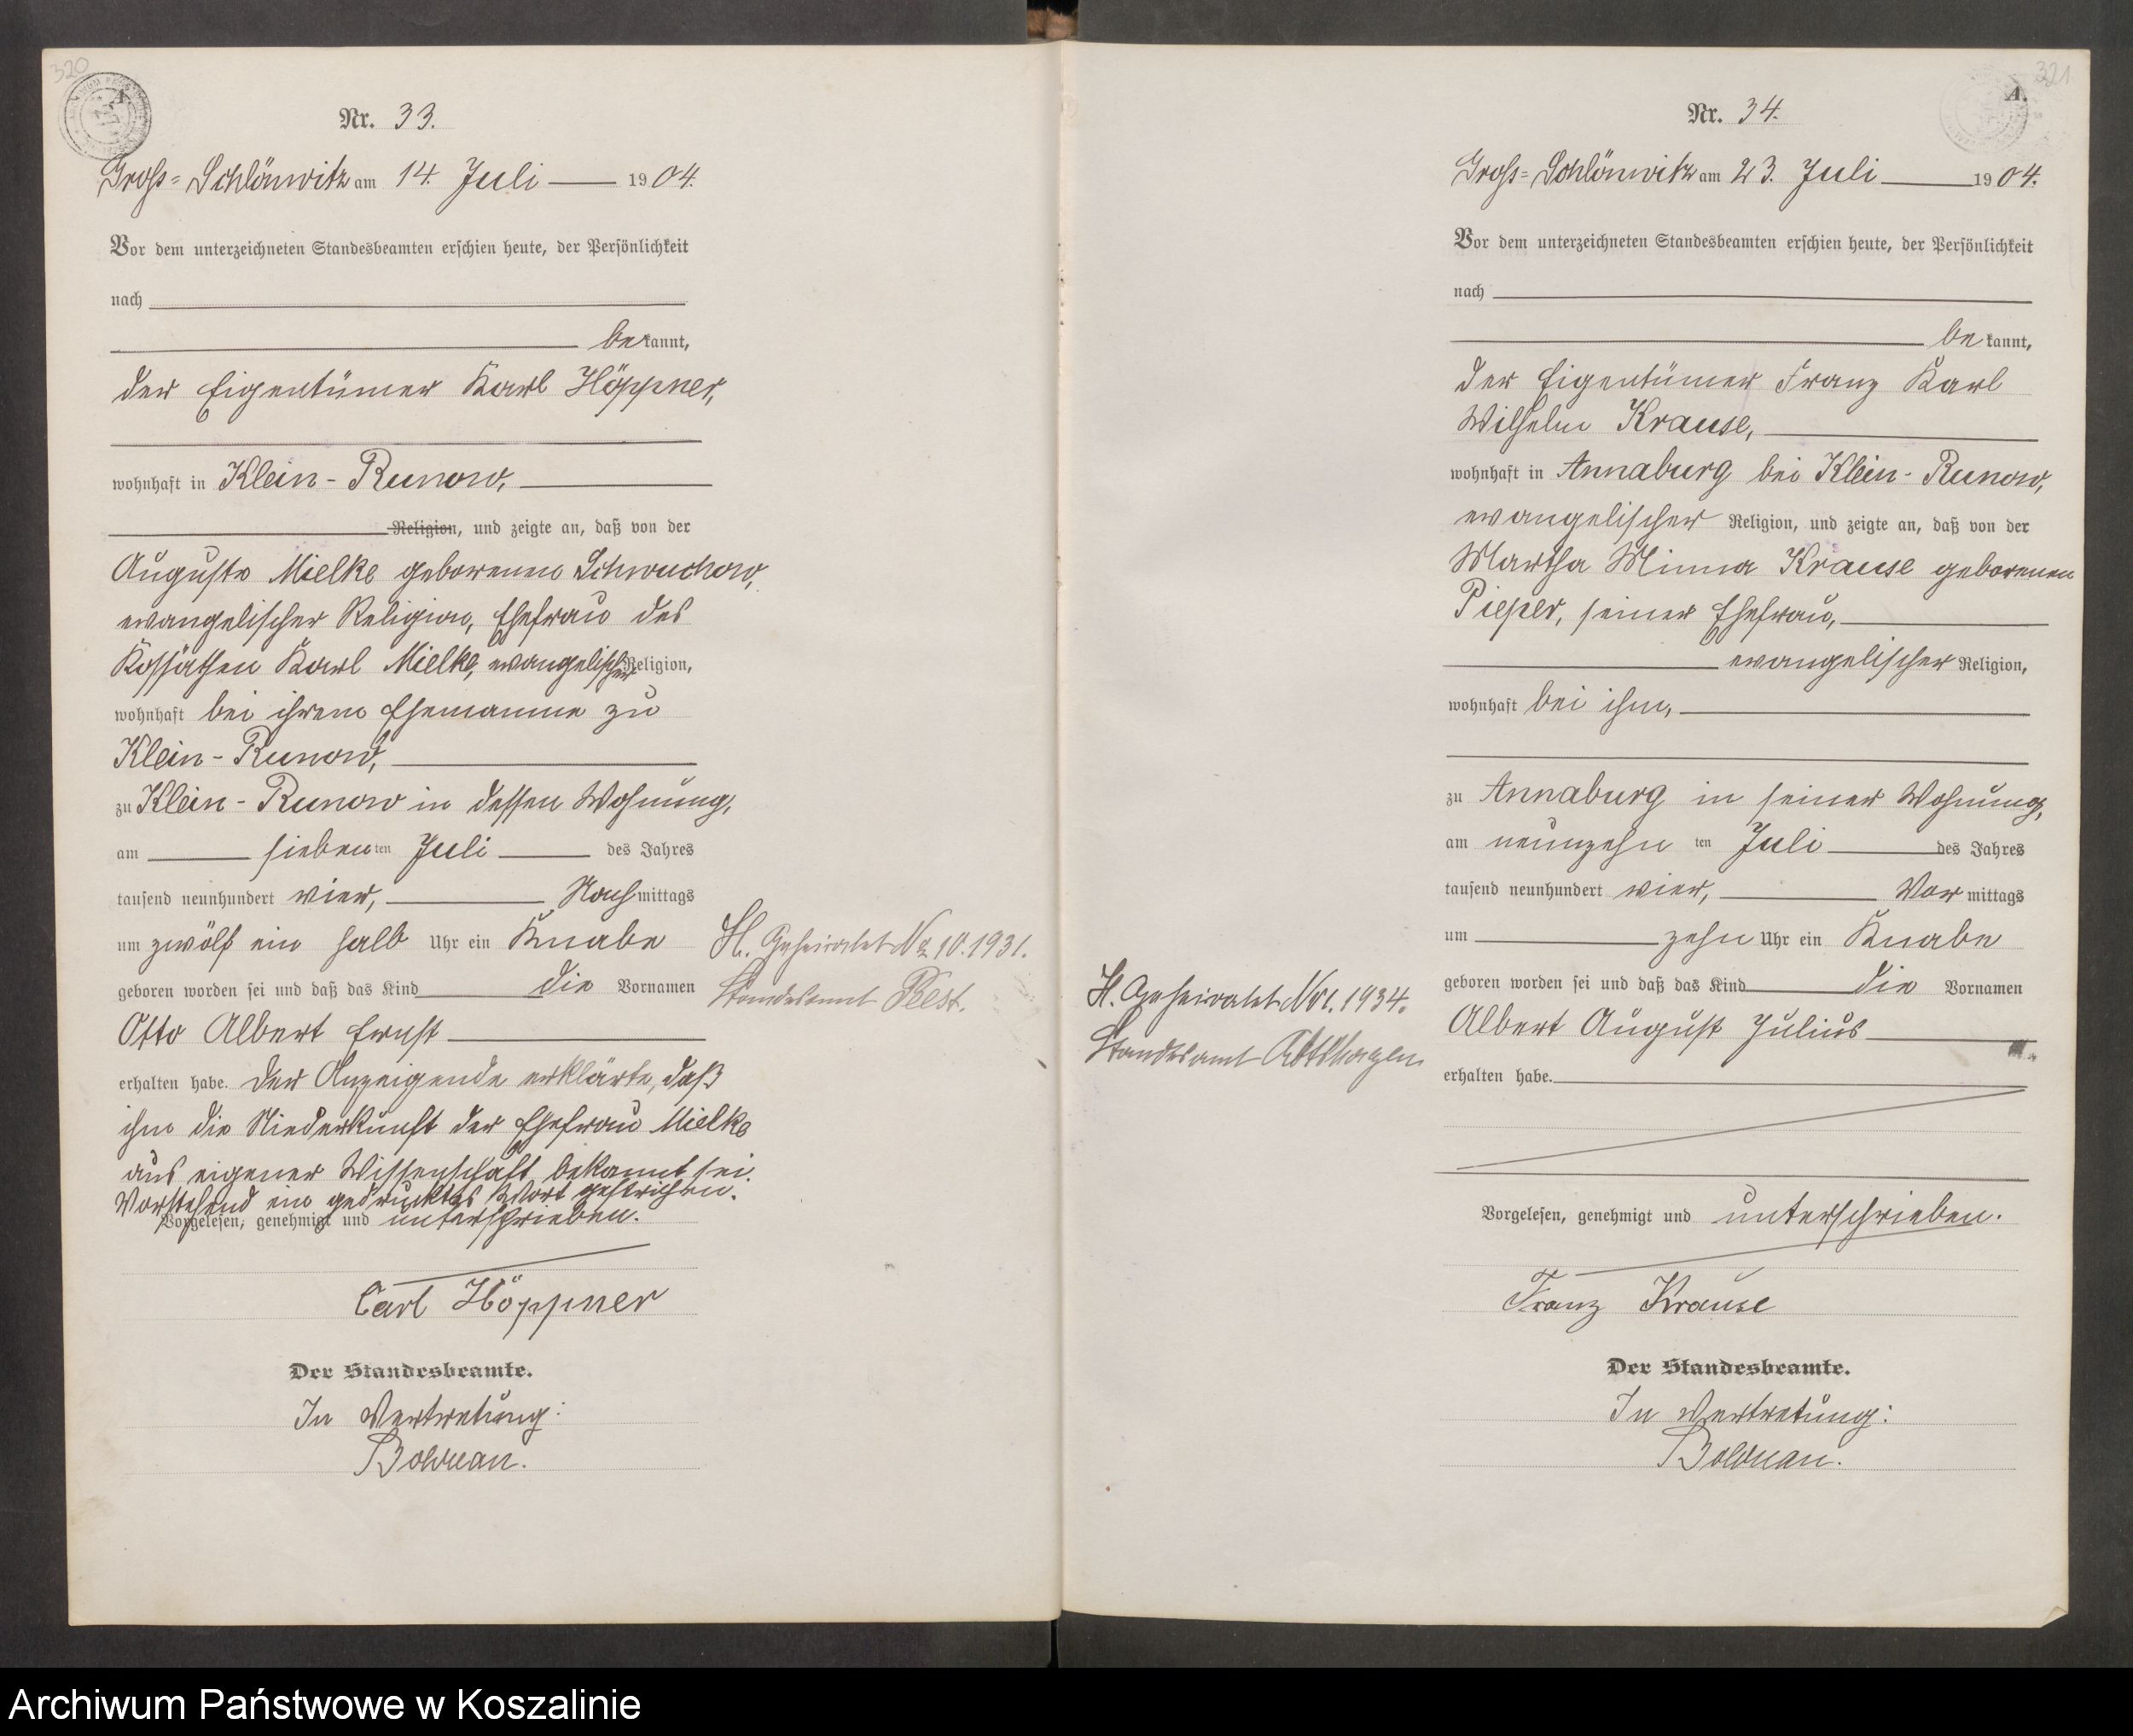 320
A
Nr. 33.
Gross-Schlönwitz am 14. Juli 1904.
Vor dem unterzeichneten Standesbeamten erschien heute, der Persönlichkeit
nach
bekannt,
der Eigentümer Karl Höppner,
wohnhaft in Klein-Runow,
Religion, und zeigte an, daß von der
Auguste Mielke geborenen Schwuchow,
evangelischer Religion, Ehefrau des
Kossäthen Karl Mielke, evangelischer Religion,
wohnhaft bei ihrem Ehemanne zu
Klein-Runow,
zu Klein-Runow in dessen Wohnung,
am siebenten Juli des Jahres
tausend neunhundert vier, Nachmittags
um zwölf ein halb Uhr ein Knabe
geboren worden sei und daß das Kind die Vornamen
Otto Albert Ernst
erhalten habe. Der Anzeigende erklärte, daß
ihm die Niederkunft der Ehefrau Mielke
aus eigener Wissenschaft bekannt sei.
Vorstehend ein gedrucktes Wort gestrichen.
Vorgelesen, genehmigt und unterschrieben.
Carl Höppner
Der Standesbeamte.
In Vertretung:
Bolduan.
H. Geheiratet Nr. 10.1931.
Standesamt Peest.
321
A.
Nr. 34.
Gross-Schlönwitz am 23. Juli 1904.
Vor dem unterzeichneten Standesbeamten erschien heute, der Persönlichkeit
nach
bekannt,
der Eigentümer Franz Karl
Wilhelm Krause,
wohnhaft in Annaburg bei Klein-Runow,
evangelischer Religion, und zeigte an, daß von der
Martha Minna Krause geborenen
Pieper, seiner Ehefrau,
evangelischer Religion,
wohnhaft bei ihm,
zu Annaburg in seiner Wohnung,
am neunzehnten Juli des Jahres
tausend neunhundert vier, Vormittags
um zehn Uhr ein Knabe
geboren worden sei und daß das Kind die Vornamen
Albert August Julius
erhalten habe.
Vorgelesen, genehmigt und unterschrieben.
Franz Krause
Der Standesbeamte.
In Vertretung:
Bolduan.
H. Geheiratet Nr 1. 1934.
Standesamt Abtshagen
Archiwum Państwowe w Koszalinie